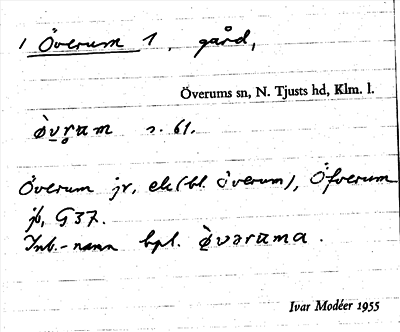 1 Överum 1, gård,
Överums sn, N. Tjusts hd, Klm. l.
s. 61.
Överum jr, ek (bl. överum), Öfverum
jb, G 37.
Inb.-namn bpl.
Ivar Modéer 1955